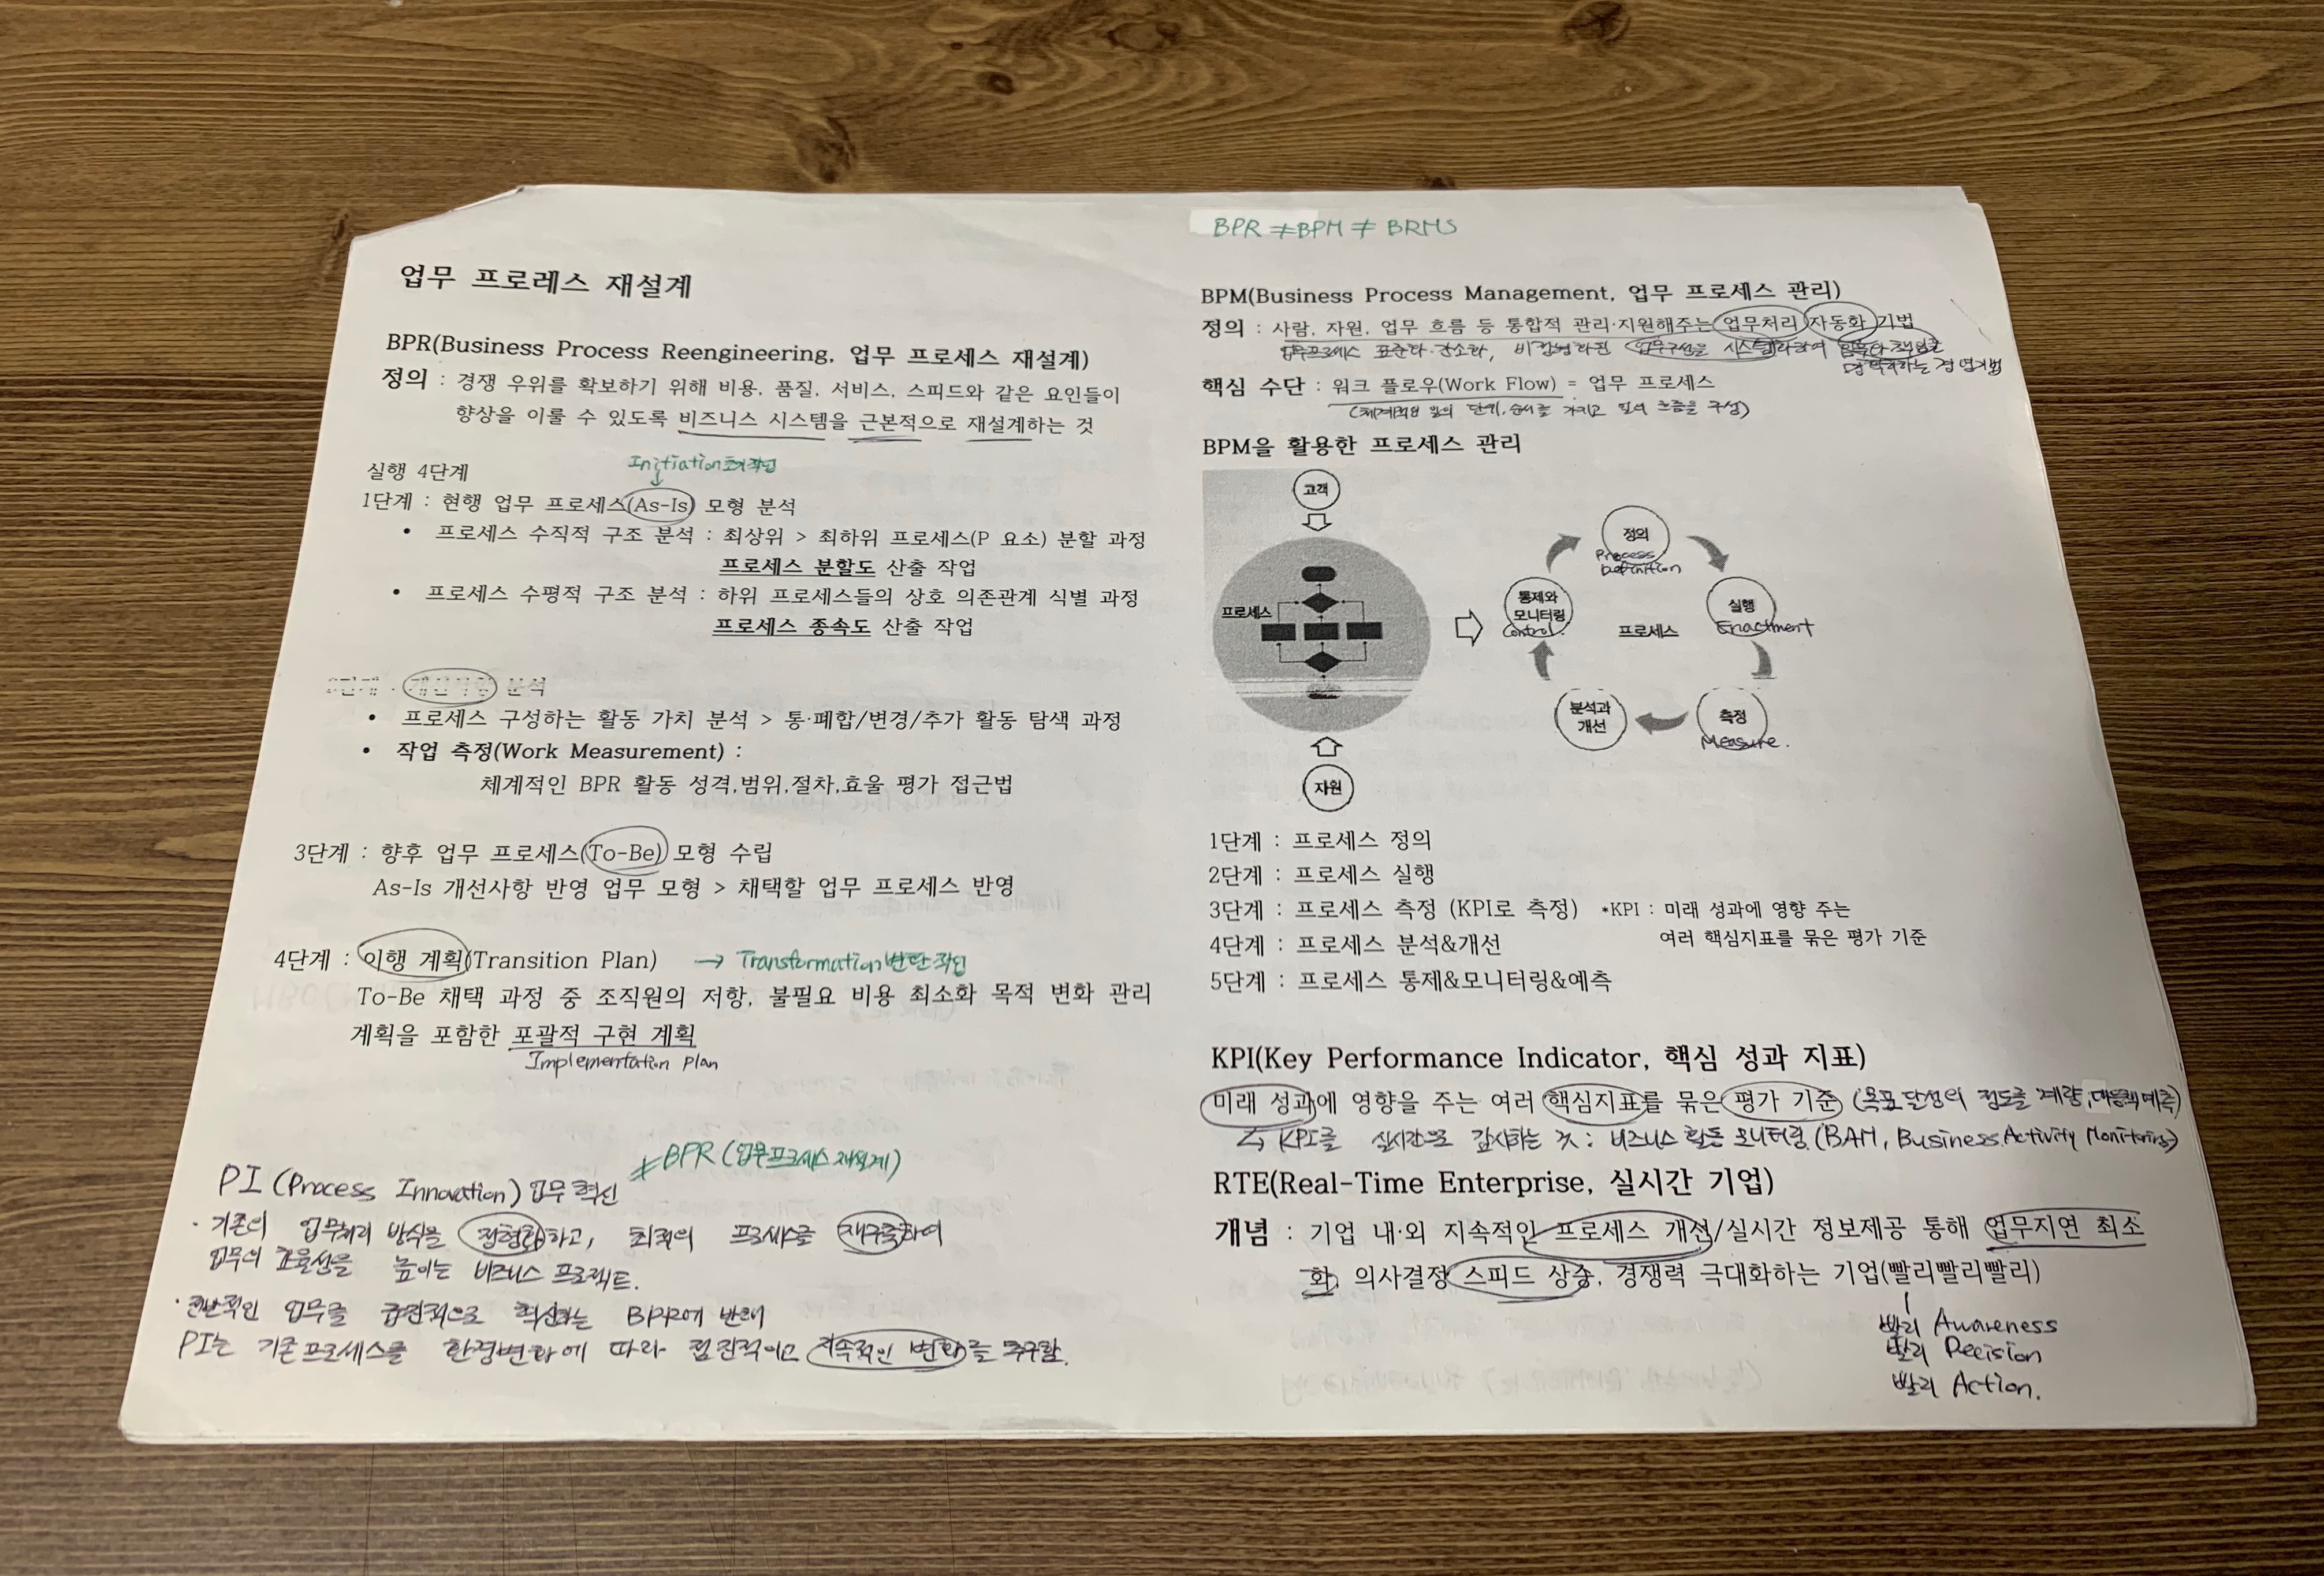 업무 프로레스 재설계
BPR(Business Process Reengineering, 업무 프로세스 재설계)
정의 : 경쟁 우위를 확보하기 위해 비용, 품질, 서비스, 스피드와 같은 요인들이
향상을 이룰 수 있도록 비즈니스 시스템을 근본적으로 재설계하는 것
실행 4단계
Initiation초기작업
1단계 : 현행 업무 프로세스(As-Is) 모형 분석
• 프로세스 수직적 구조 분석 : 최상위 > 최하위 프로세스(P 요소) 분할 과정
프로세스 분할도 산출 작업
• 프로세스 수평적 구조 분석 : 하위 프로세스들의 상호 의존관계 식별 과정
프로세스 종속도 산출 작업
단계 : 개선사항 분석
• 프로세스 구성하는 활동 가치 분석 > 통·폐합/변경/추가 활동 탐색 과정
• 작업 측정(Work Measurement) :
체계적인 BPR 활동 성격,범위,절차,효율 평가 접근법
3단계 : 향후 업무 프로세스(To-Be) 모형 수립
As-Is 개선사항 반영 업무 모형 > 채택할 업무 프로세스 반영
4단계 : 이행 계획(Transition Plan) → Transformation변환작업
To-Be 채택 과정 중 조직원의 저항, 불필요 비용 최소화 목적 변화 관리
계획을 포함한 포괄적 구현 계획
Implementation plan
≠BPR (업무프로세스 재설계)
PI (Process Innovation) 업무 혁신
· 기존의 업무처리 방식을 정형화하고, 최적의 프로세스를 재구축하여
업무의 효율성을 높이는 비즈니스 프로젝트.
· 전반적인 업무를 급진적으로 혁신하는 BPR에 반해
PI는 기존프로세스를 환경변화에 따라 점진적이고 지속적인 변화를 추구함.
BPR ≠BPM ≠ BRMS
BPM(Business Process Management, 업무 프로세스 관리)
정의 : 사람, 자원, 업무 흐름 등 통합적 관리·지원해주는 업무처리 자동화 기법
업무프로세스 표준화·간소화, 업무구성을 시스템화하여
하는 경영기법
핵심 수단 : 워크 플로우(Work Flow) = 업무 프로세스
(체계적인 일의 단위, 순서를 가지고 일의 흐름을 구성)
BPM을 활용한 프로세스 관리
고객
프로세스
자원
정의
Process
Definition
실행
Enactment
측정
Measure.
분석과
개선
통제와
모니터링
Control.
프로세스
1단계 : 프로세스 정의
2단계 : 프로세스 실행
3단계 : 프로세스 측정 (KPI로 측정) *KPI : 미래 성과에 영향 주는
여러 핵심지표를 묶은 평가 기준
4단계 : 프로세스 분석&개선
5단계 : 프로세스 통제&모니터링&예측
KPI(Key Performance Indicator, 핵심 성과 지표)
미래 성과에 영향을 주는 여러 핵심지표를 묶은 평가 기준 (목표달성의 정도를 계량, 대응책예측)
↳ KPI를 실시간으로 감시하는 것 : 비즈니스 활동 모니터링 (BAM, Business Activity Monitoring)
RTE(Real-Time Enterprise, 실시간 기업)
개념 : 기업 내·외 지속적인 프로세스 개선/실시간 정보제공 통해 업무지연 최소
화, 의사결정 스피드 상승, 경쟁력 극대화하는 기업(빨리빨리빨리)
빨리 Awareness
빨리 Decision
빨리 Action.